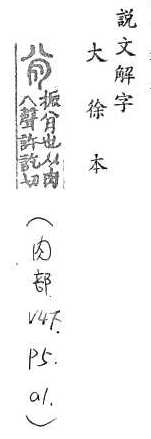 説文解字
大徐本
䏌
振䏌也从肉
八聲許訖切
（肉部 V4下. P5. a1.）